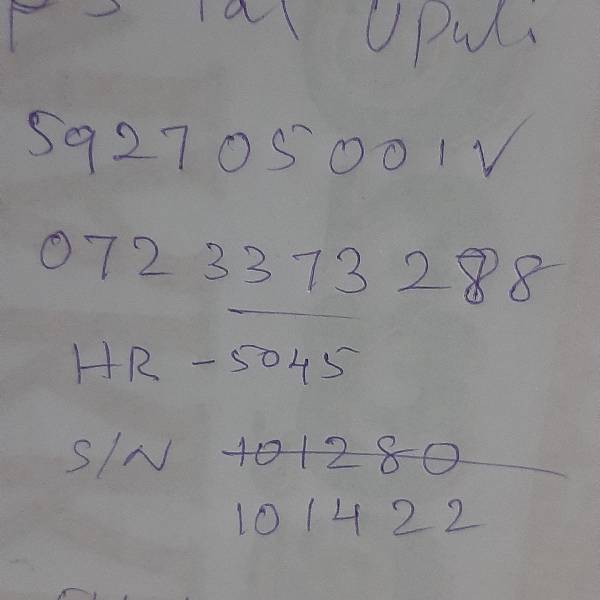 Upuli
592705001V
072 3373 288
HR - 5045
S/N 101280
101422